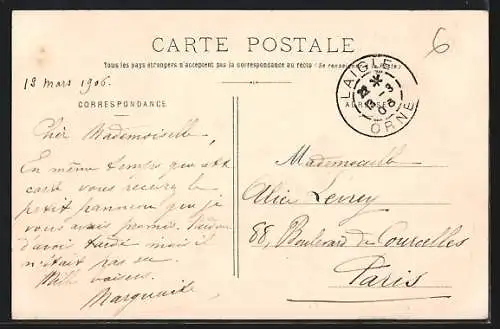 CARTE POSTALE
Tous les pays étrangers n'acceptent pas la correspondance au recto (Se renseigner à la
12 mars 1906.
CORRESPONDANCE
LAIGLE
ORNE
6
Cher Mademoiselle,
En même temps que cette
carte vous recevrez le
petit panneau que je
vous avais promis.
d'avoir tardé mais il
n'était pas
Mille baisers
Marguerite
Mademoiselle
Alice
88, Boulevard de Courcelles
Paris